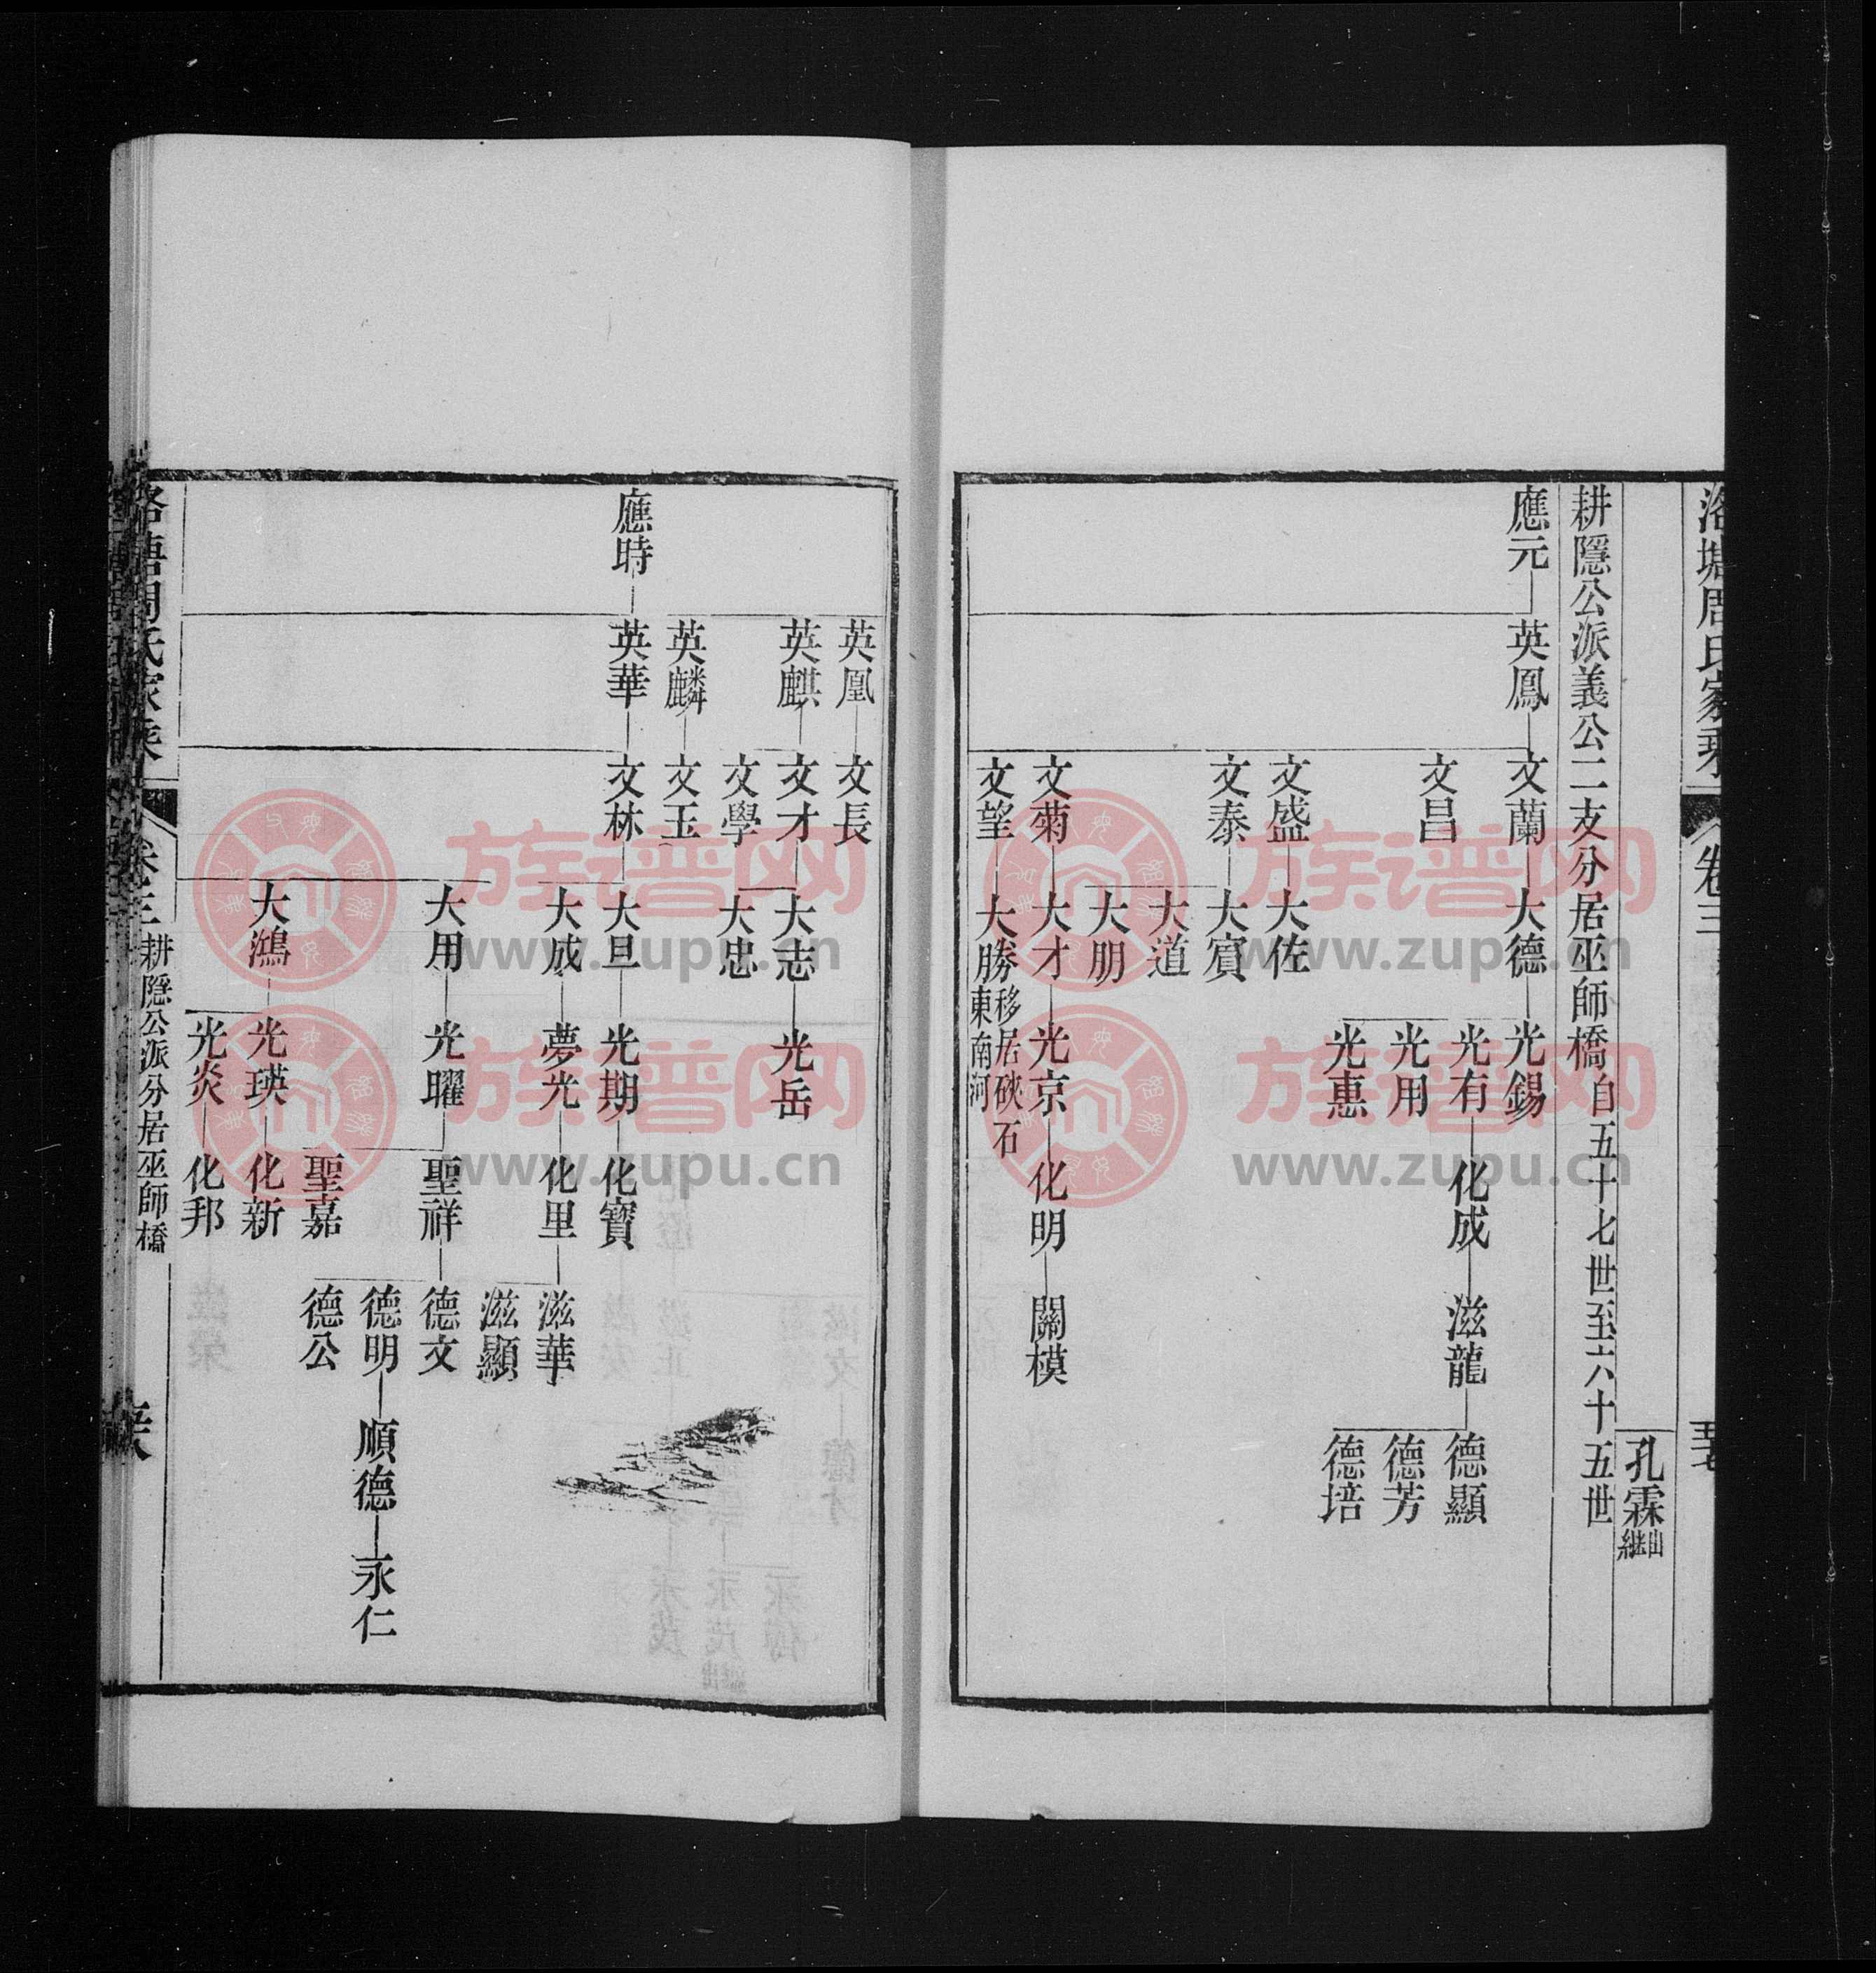 洛塘周氏家乘
卷三
五十七
孔霖出繼
耕隱公派義公二支分居巫師橋自五十七世至六十五世
應元
英鳳
文蘭
大德
光錫
光有
化成
滋龍
德顯
德芳
德培
光用
光惠
文昌
文盛
大佐
文泰
大賓
大道
大朋
文菊
大才
光京
化明
關模
文望
大勝移居硤石東南河
英凰
文長
英麒
文才
大志
光岳
大忠
文學
英麟
文玉
應時
英華
文林
大旦
光期
化寶
大成
夢光
化里
滋華
滋顯
大用
光曜
聖祥
德文
德明
順德
永仁
德公
聖嘉
大鴻
光瑛
化新
光炎
化邦
洛塘周氏家乘
卷三
耕隱公派分居巫師橋
族谱网
www.zupu.cn
族谱网
www.zupu.cn
族谱网
www.zupu.cn
族谱网
www.zupu.cn